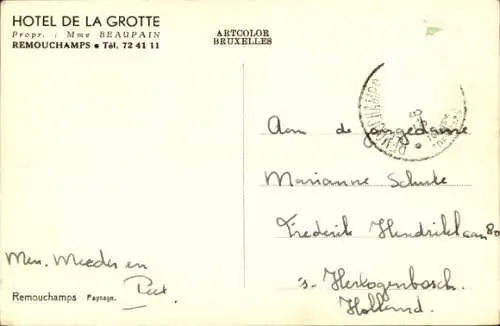 HOTEL DE LA GROTTE
Propr. : Mme BEAUPAIN
REMOUCHAMPS • Tél. 72 41 11
ARTCOLOR
BRUXELLES
Aan de jongedame
Marianne
Frederik Hendriklaan 80
's-Hertogenbosch.
Holland.
Mevr. Meeder en
Piet.
Remouchamps Paysage.